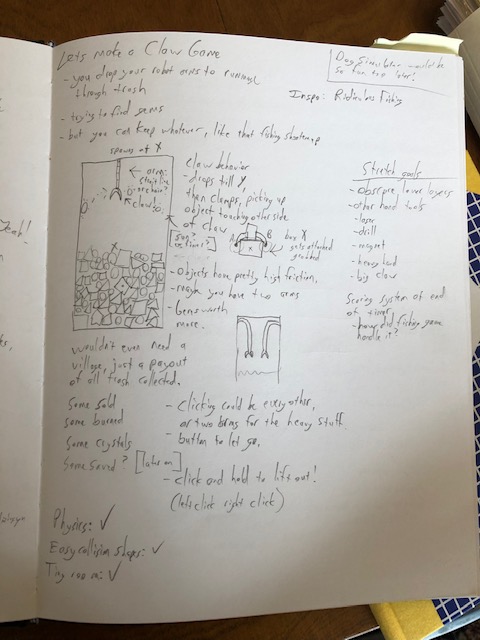 Lets make a Claw Game
- you drop your robot arms to rummage
through trash
- trying to find gems
- but you can keep whatever, like that fishing shootemup
Dog Simulator would be
so fun, try later!
Inspo: Ridiculous Fishing
spawns at X
claw
Claw behavior
- drops till Y,
then clamps, picking up
object touching other side
of claw
A
B
box X
gets attached
- Objects have pretty high friction,
- maybe you have two arms
- Gems worth
more.
Stretch goals
- obscure lower layers
- other hand tools
- laser
- drill
- magnet
- heavy hand
- big claw
Scoring system at end
of timer
- how did fishing game
handle it?
wouldn't even need a
village, just a payout
of all trash collected.
Some sold
some burned
Some crystals
Some saved? [later on]
- Clicking could be every other,
or two arms for the heavy stuff
- button to let go.
- click and hold to lift out!
(left click right click)
Physics: ✓
Easy collision shapes: ✓
Tiny room: ✓